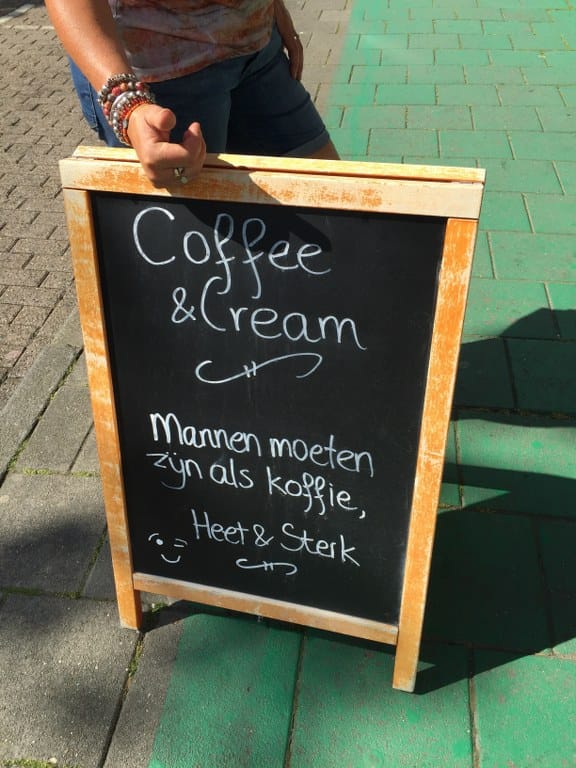 Coffee
& Cream
Mannen moeten
zijn als koffie,
Heet & Sterk